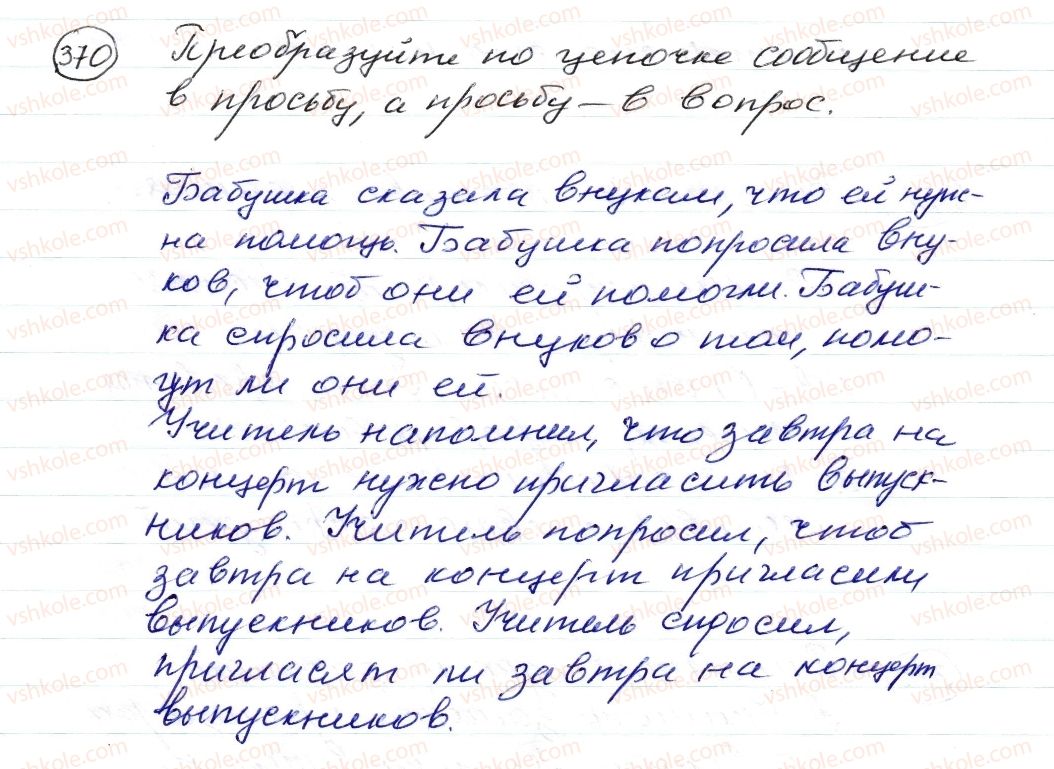 370 Преобразуйте по цепочке сообщение
в просьбу, а просьбу – в вопрос.
Бабушка сказала внукам, что ей нуж-
на помощь. Бабушка попросила вну-
ков, чтоб они ей помогли. Бабуш-
ка спросила внуков о том, помо-
гут ли они ей.
Учитель напомнил, что завтра на
концерт нужно пригласить выпуск-
ников. Учитель попросил, чтоб
завтра на концерт пригласили
выпускников. Учитель спросил,
пригласят ли завтра на концерт
выпускников.